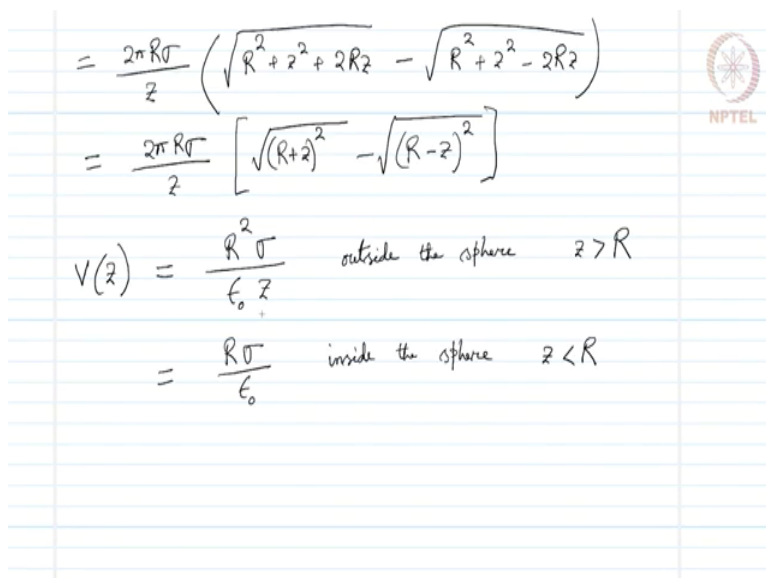 = 2πRσ/z (√(R² + z² + 2Rz) − √(R² + z² − 2Rz))
NPTEL
= 2πRσ/z [√(R+z)² − √(R−z)²]
V(z) = R²σ/ϵ₀z outside the sphere z > R
= Rσ/ϵ₀ inside the sphere z < R